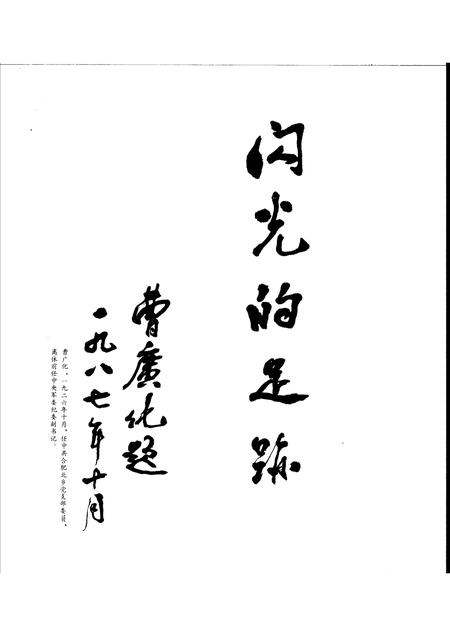 闪光的足跡
曹廣化题
一九八七年十月
曹广化,一九二六年十月,任中共合肥北乡党支部委员,
离休前任中央军委纪委副书记。